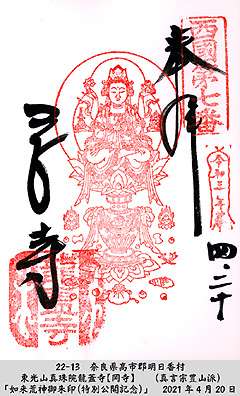 西國第七番
奉拝
令和三年
四・二十
寺
22-13 奈良県高市郡明日香村
東光山真珠院龍蓋寺【岡寺】 (真言宗豊山派)
「如来荒神御朱印(特別公開記念)」 2021年4月20日